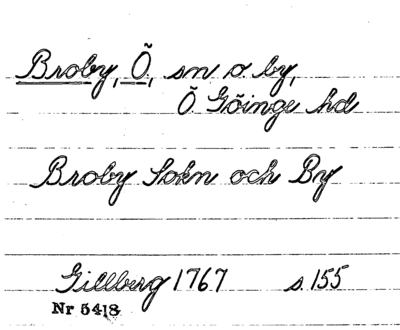 Broby, Ö, sn o by,
Ö Göinge hd
Broby Sokn och By
Gillberg 1767 s. 155
Nr 5418